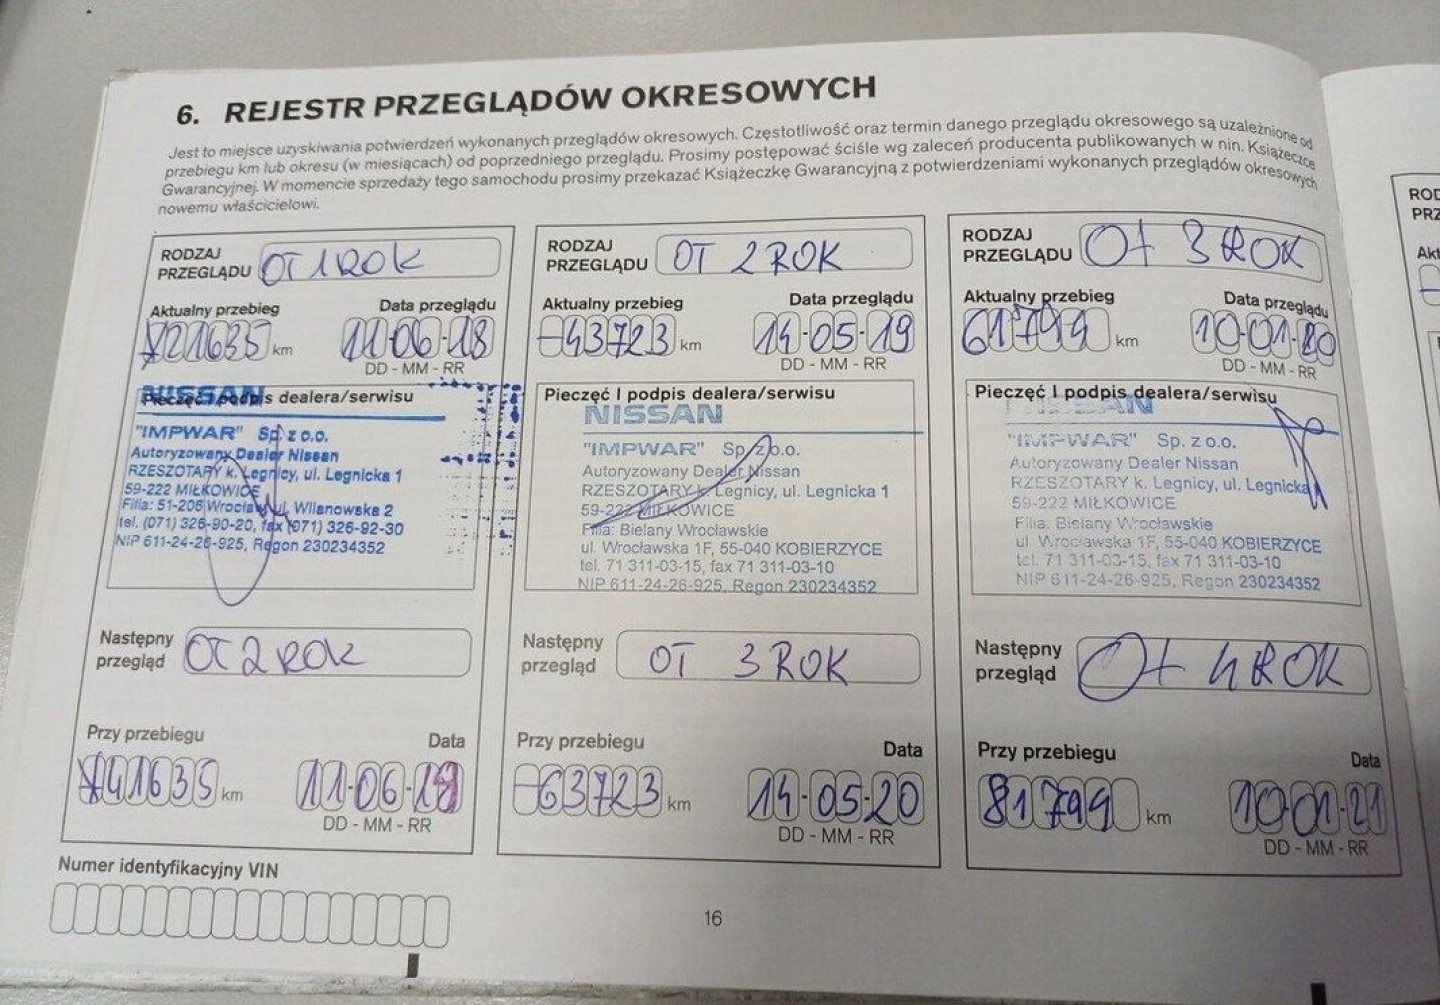 6. REJESTR PRZEGLĄDÓW OKRESOWYCH
Jest to miejsce uzyskiwania potwierdzeń wykonanych przeglądów okresowych. Częstotliwość oraz termin danego przeglądu okresowego są uzależnione od
przebiegu km lub okresu (w miesiącach) od poprzedniego przeglądu. Prosimy postępować ściśle wg zaleceń producenta publikowanych w nin. Książeczce
Gwarancyjnej. W momencie sprzedaży tego samochodu prosimy przekazać Książeczkę Gwarancyjną z potwierdzeniami wykonanych przeglądów okresowych
nowemu właścicielowi.
RODZAJ
PRZEGLĄDU OT 1 ROK
Aktualny przebieg Data przeglądu
21635 km 11-06-18
DD - MM - RR
NISSAN
Pieczęć I podpis dealera/serwisu
"IMPWAR" Sp. z o.o.
Autoryzowany Dealer Nissan
RZESZOTARY k. Legnicy, ul. Legnicka 1
59-222 MIŁKOWICE
Filia: 51-206 Wrocław, ul. Wilanowska 2
tel. (071) 326-90-20, fax (071) 326-92-30
NIP 611-24-26-925, Regon 230234352
Następny
przegląd OT 2 ROK
Przy przebiegu Data
41635 km 11-06-19
DD - MM - RR
RODZAJ
PRZEGLĄDU OT 2 ROK
Aktualny przebieg Data przeglądu
-43723 km 14-05-19
DD - MM - RR
Pieczęć I podpis dealera/serwisu
NISSAN
"IMPWAR" Sp. z o.o.
Autoryzowany Dealer Nissan
RZESZOTARY k. Legnicy, ul. Legnicka 1
59-222 MIŁKOWICE
Filia: Bielany Wrocławskie
ul. Wrocławska 1F, 55-040 KOBIERZYCE
tel. 71 311-03-15, fax 71 311-03-10
NIP 611-24-26-925, Regon 230234352
Następny
przegląd OT 3 ROK
Przy przebiegu Data
-63723 km 14-05-20
DD - MM - RR
RODZAJ
PRZEGLĄDU Ot 3 ROK
Aktualny przebieg Data przeglądu
61799 km 10-01-20
DD - MM - RR
Pieczęć I podpis dealera/serwisu
NISSAN
"IMPWAR" Sp. z o.o.
Autoryzowany Dealer Nissan
RZESZOTARY k. Legnicy, ul. Legnicka
59-222 MIŁKOWICE
Filia: Bielany Wrocławskie
ul. Wrocławska 1F, 55-040 KOBIERZYCE
tel. 71 311-03-15, fax 71 311-03-10
NIP 611-24-26-925, Regon 230234352
Następny
przegląd Ot 4 ROK
Przy przebiegu Data
81799 km 10-01-21
DD - MM - RR
Numer identyfikacyjny VIN
16